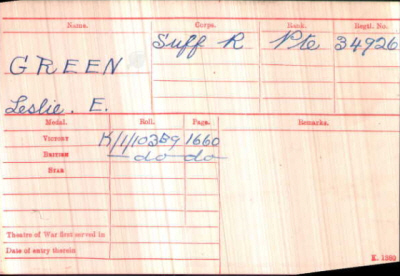 Name. Corps. Rank. Regtl. No.
GREEN Suff R Pte 34926
Leslie. E.
Medal. Roll. Page. Remarks.
VICTORY K/1/103B9 1660
BRITISH — do — do
STAR
Theatre of War first served in
Date of entry therein
K. 1380